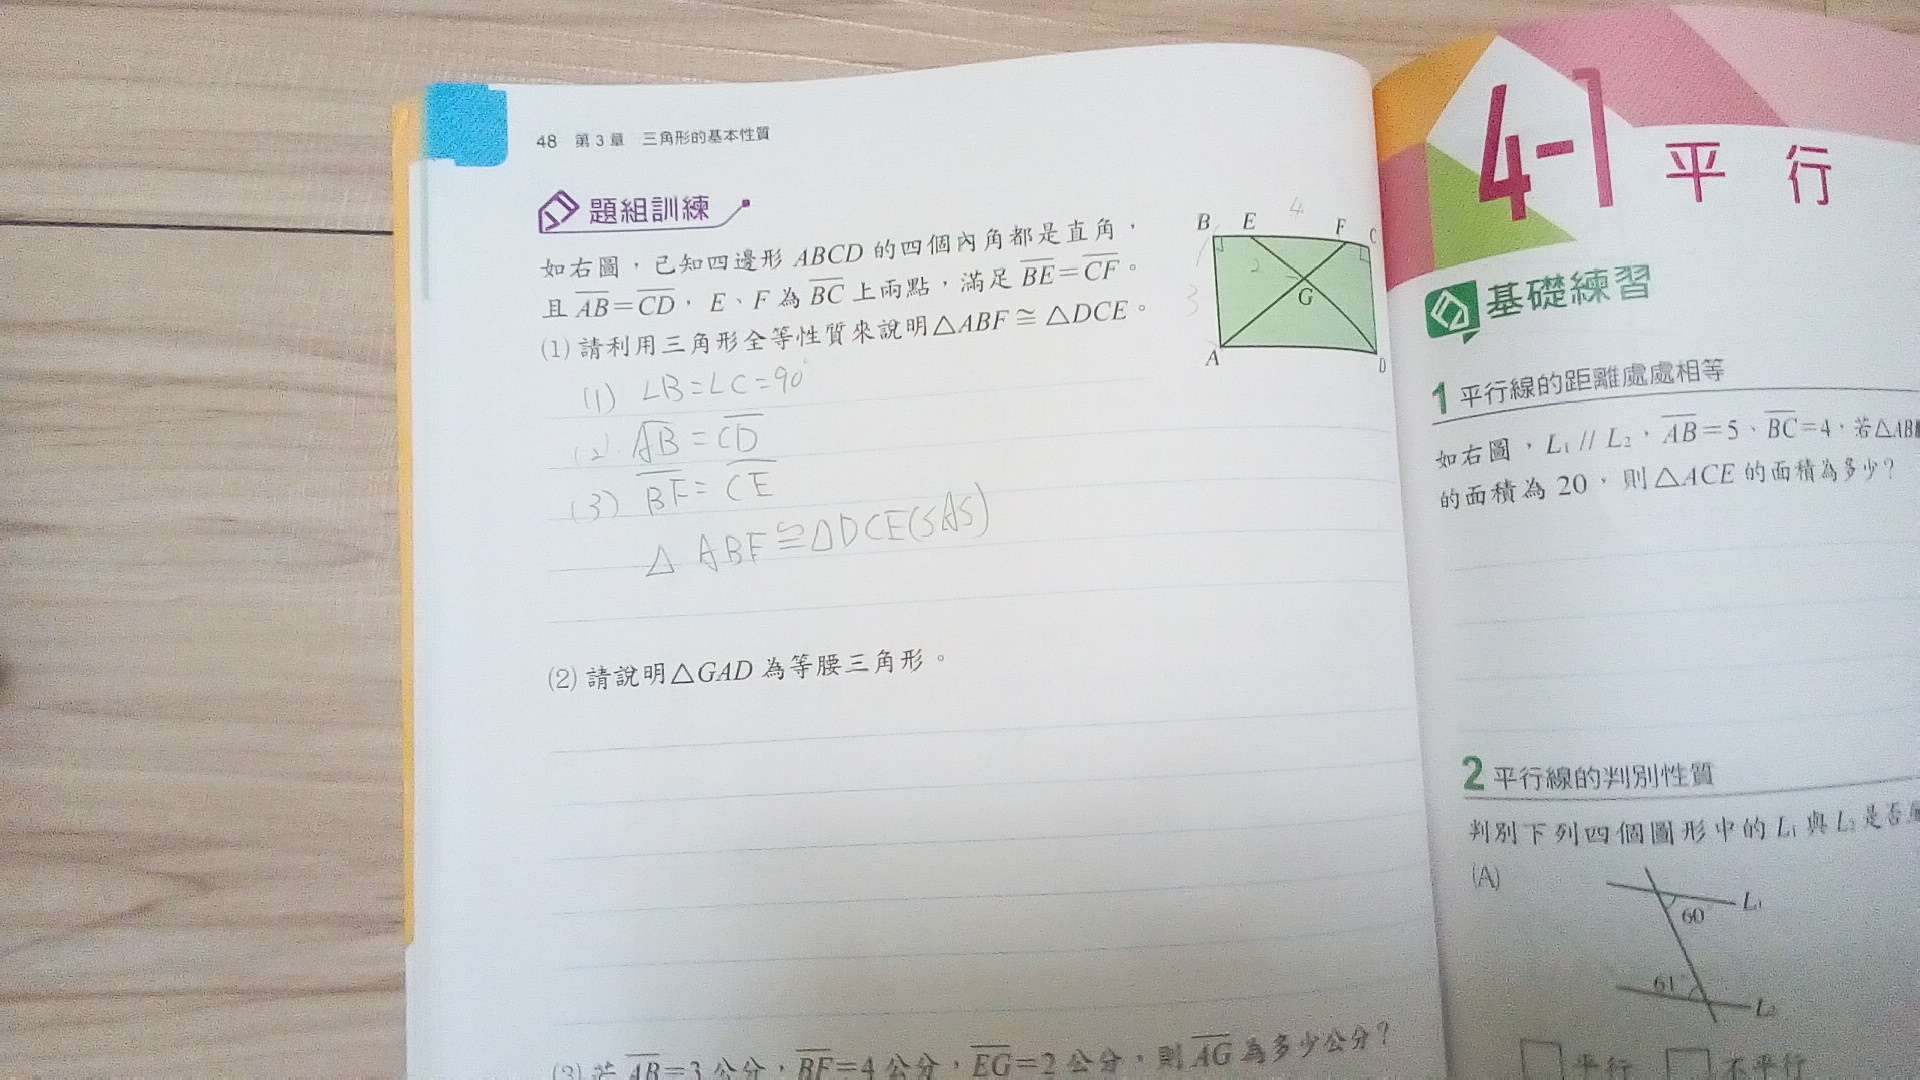 48 第3章 三角形的基本性質
題組訓練
如右圖，已知四邊形 ABCD 的四個內角都是直角，
且 AB=CD，E、F 為 BC 上兩點，滿足 BE=CF。
(1) 請利用三角形全等性質來說明△ABF≅△DCE。
(1) ∠B=∠C=90°
(2) AB=CD
(3) BF=CE
△ABF≅△DCE(SAS)
B E 4 F C
2
3
G
A D
(2) 請說明△GAD 為等腰三角形。
(3) 若 AB=3公分，BF=4公分，EG=2公分，則 AG 為多少公分？
4-1 平行
基礎練習
1 平行線的距離處處相等
如右圖，L₁ // L₂，AB=5、BC=4，若△AB
的面積為 20，則△ACE 的面積為多少？
2 平行線的判別性質
判別下列四個圖形中的 L₁ 與 L₂ 是否
(A)
L₁
60
61
L₂
平行 不平行